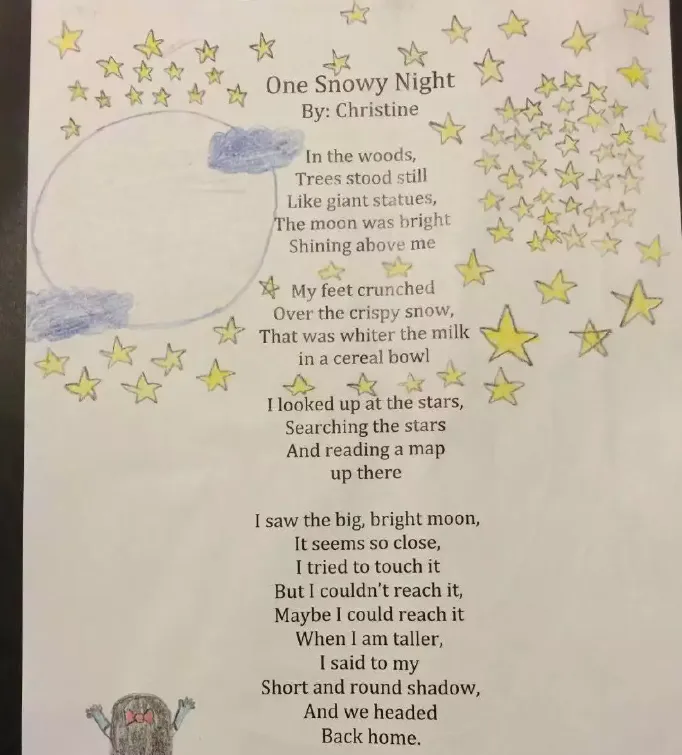 One Snowy Night
By: Christine
In the woods,
Trees stood still
Like giant statues,
The moon was bright
Shining above me
My feet crunched
Over the crispy snow,
That was whiter the milk
in a cereal bowl
I looked up at the stars,
Searching the stars
And reading a map
up there
I saw the big, bright moon,
It seems so close,
I tried to touch it
But I couldn't reach it,
Maybe I could reach it
When I am taller,
I said to my
Short and round shadow,
And we headed
Back home.